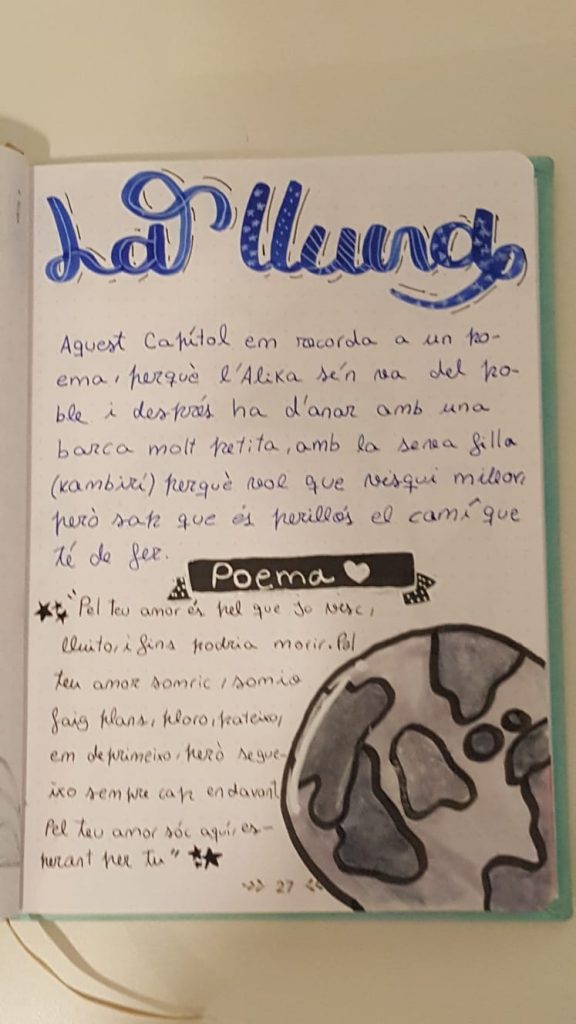 La lluna
Aquest Capítol em recorda a un po-
ema, perquè l'Alika se'n va del po-
ble i després ha d'anar amb una
barca molt petita, amb la seva filla
(Kambirí) perquè vol que visqui millor,
però sap que és perillós el camí que
té de fer.
Poema
"Pel teu amor és pel que jo visc,
lluito, i fins podria morir. Pel
teu amor somric, somio
faig plans, ploro, pateixo,
em deprimeixo, però segue-
ixo sempre cap endavant
Pel teu amor sóc aquí, es-
perant per tu"
27